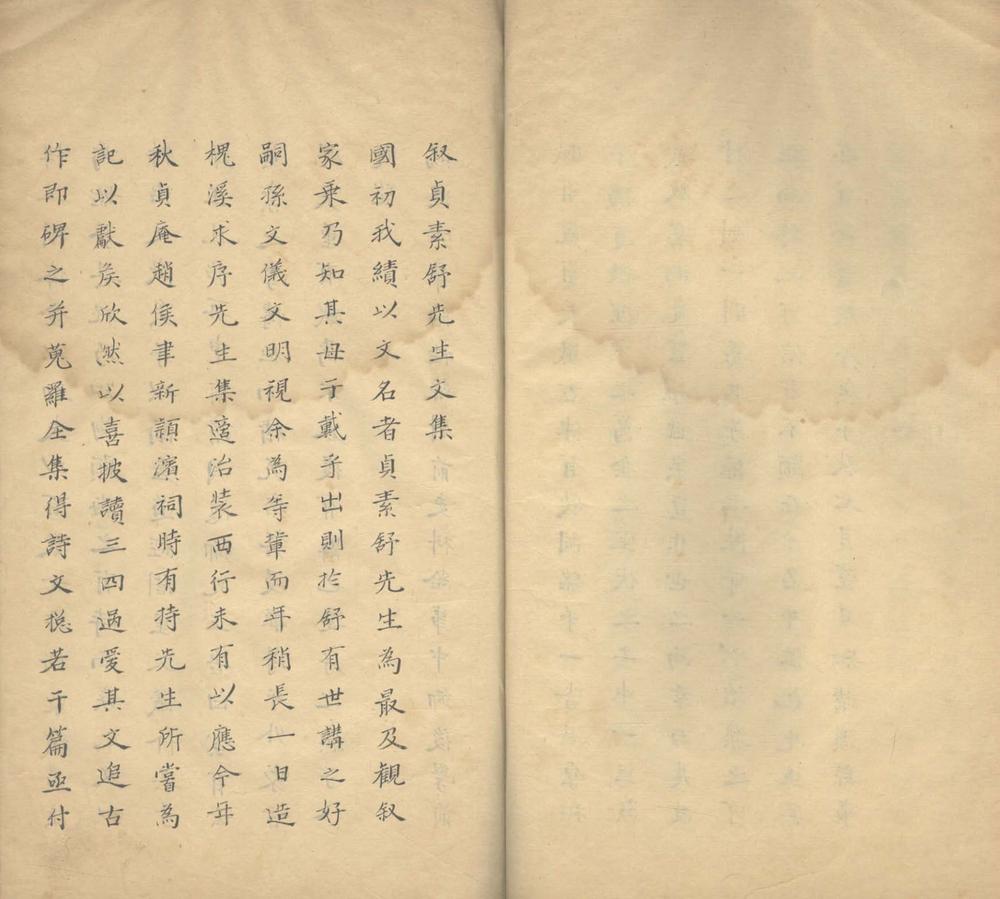 叙貞素舒先生文集
國初我績以文名者貞素舒先生為最及觀叙
家乘乃知其母于戴乎出則於舒有世講之好
嗣孫文儀文明視余為等輩而年稍長一日造
槐溪求序先生集適治装西行未有以應今年
秋貞庵趙侯聿新頴濱祠時有持先生所嘗為
記以獻矦欣然以喜披讀三四過愛其文追古
作即碑之并蒐羅全集得詩文揔若干篇亟付